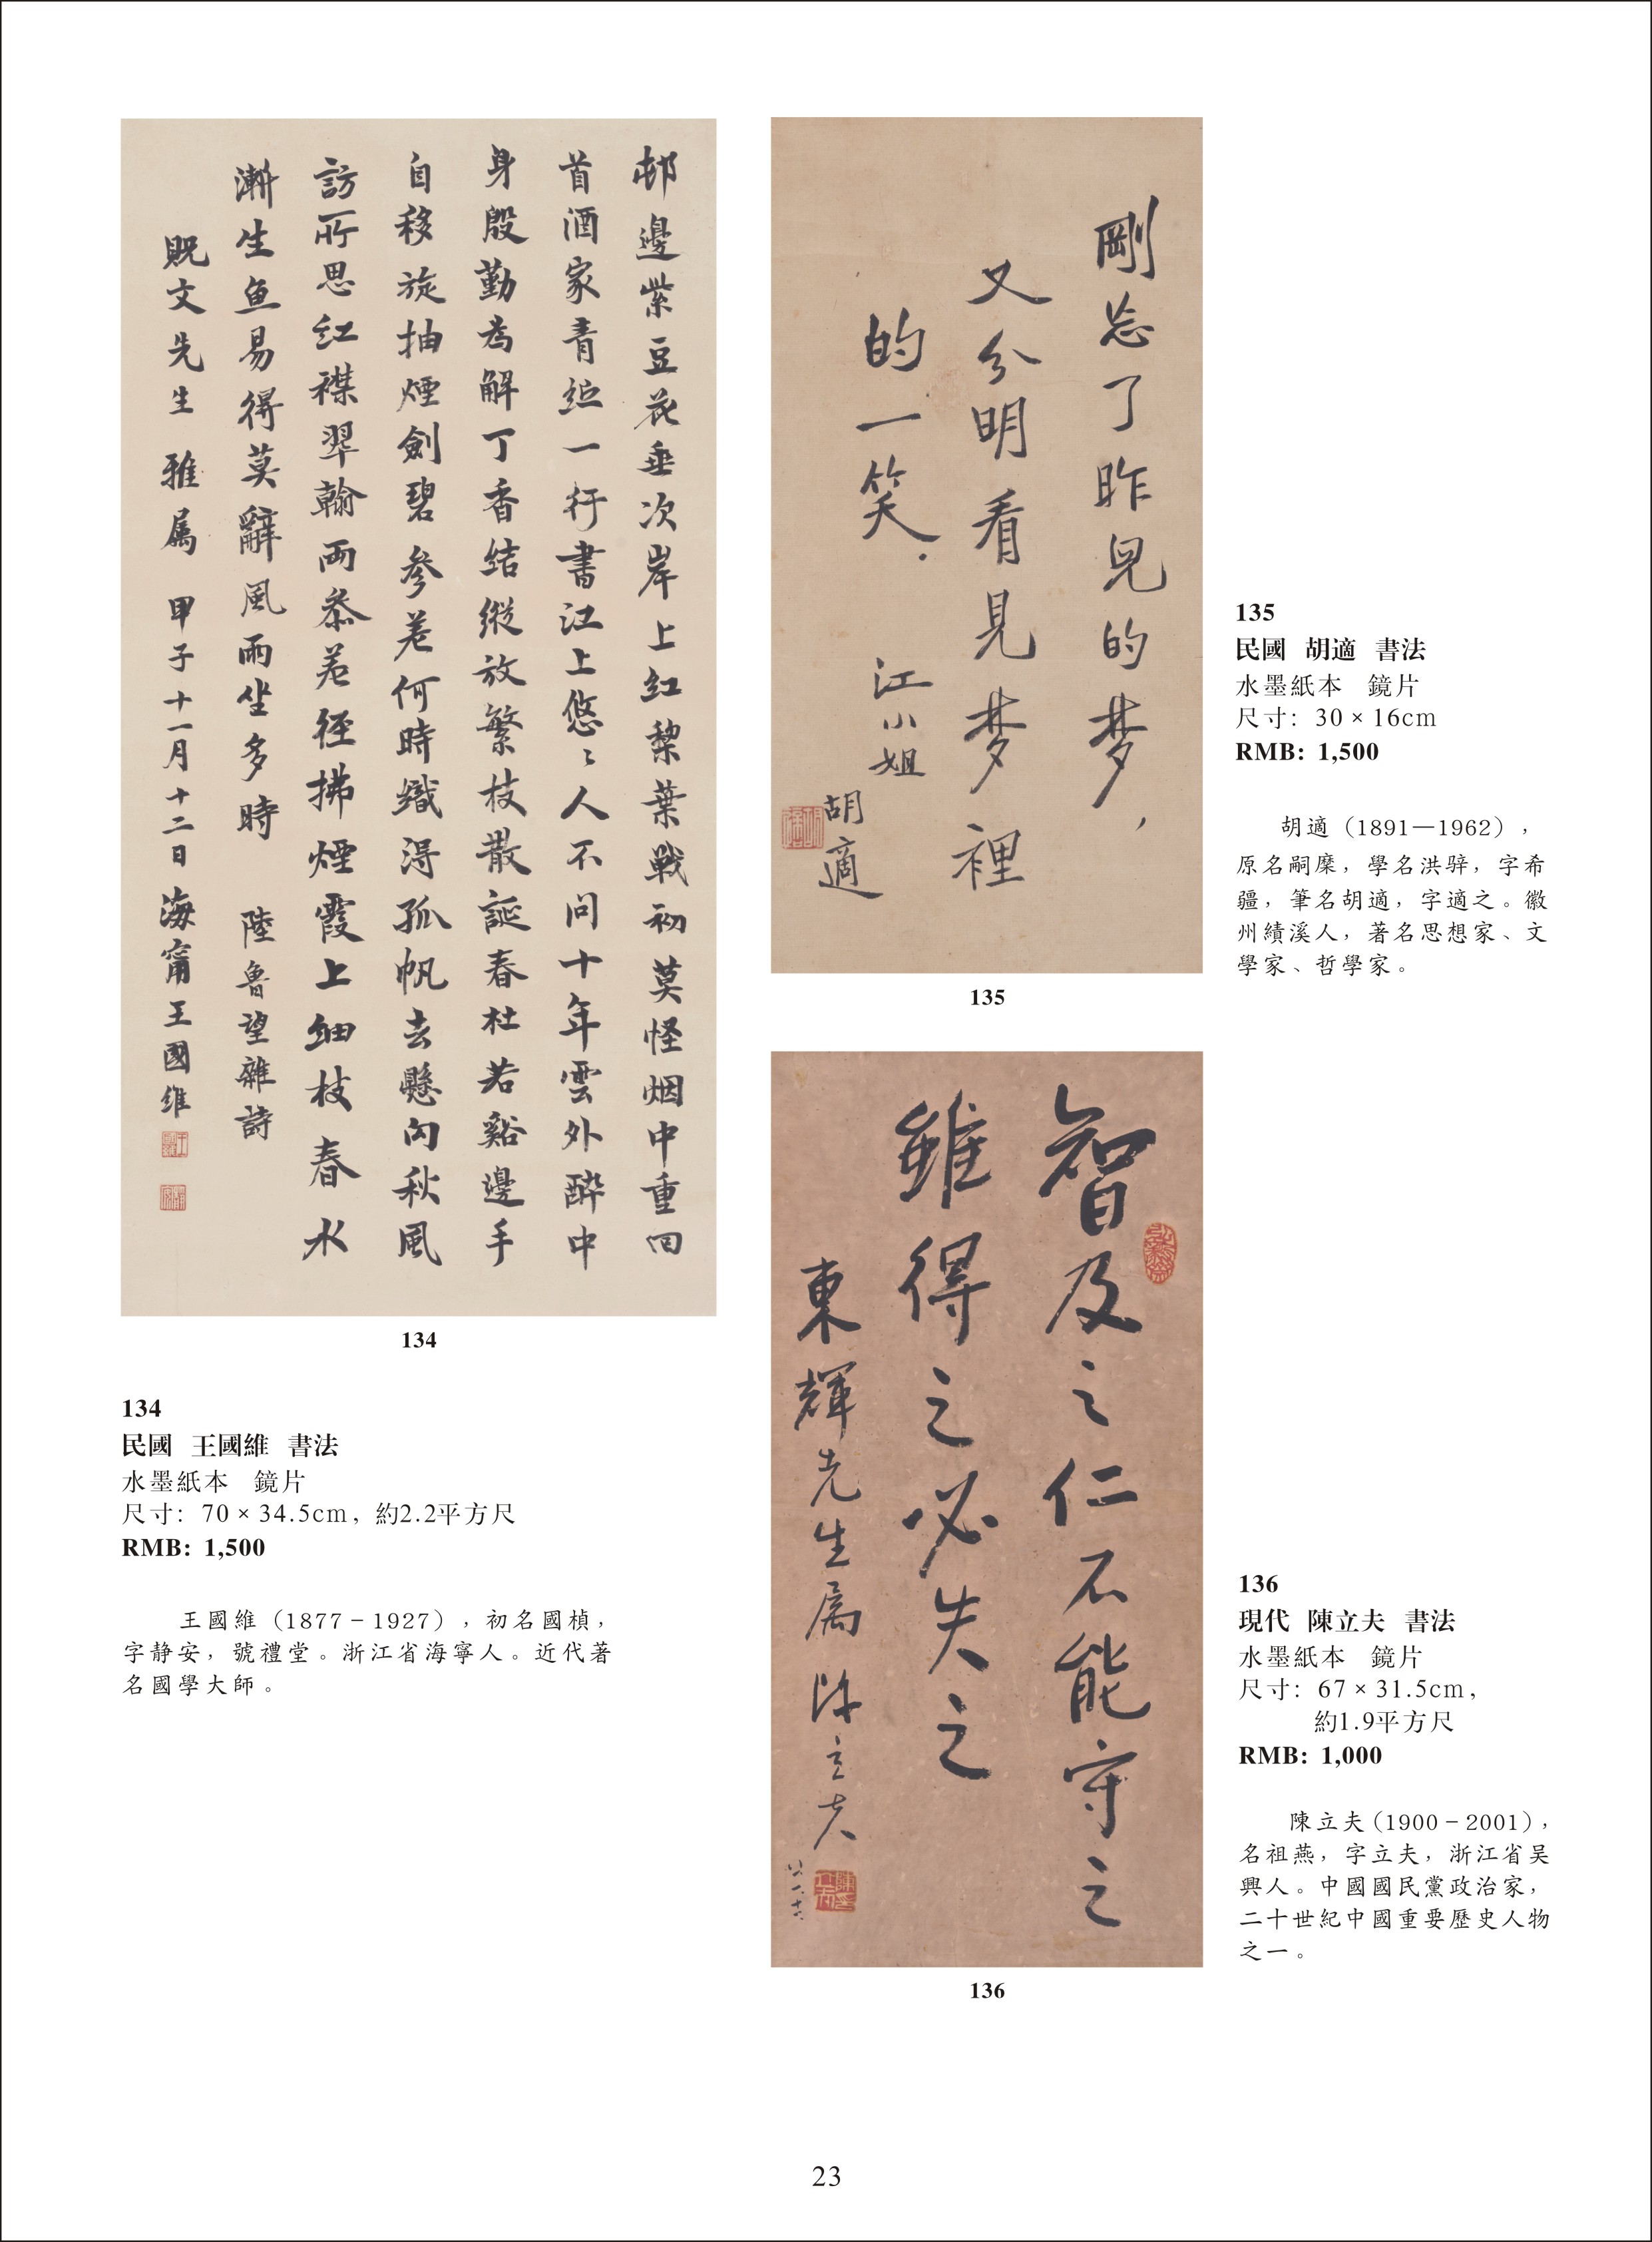 邨邊紫豆花垂次岸上紅棃葉戰初莫怪烟中重回
首酒家青紵一行書江上悠〻人不問十年雲外醉中
身殷勤為解丁香結縱放繁枝散誕春杜若谿邊手
自移旋抽煙劍碧參差何時織得孤帆去懸向秋風
訪所思紅襟翠翰兩參差徑拂煙霞上細枝春水
漸生魚易得莫辭風雨坐多時 陸魯望雜詩
貺文先生 雅屬 甲子十一月十二日海甯王國維
134
134
民國 王國維 書法
水墨紙本 鏡片
尺寸: 70×34.5cm, 約2.2平方尺
RMB: 1,500
王國維（1877-1927），初名國楨，
字静安，號禮堂。浙江省海寧人。近代著
名國學大師。
剛忘了昨兒的梦，
又分明看見梦裡
的一笑．
江小姐
胡適
135
135
民國 胡適 書法
水墨紙本 鏡片
尺寸: 30×16cm
RMB: 1,500
胡適（1891—1962），
原名嗣穈，學名洪騂，字希
疆，筆名胡適，字適之。徽
州績溪人，著名思想家、文
學家、哲學家。
智及之仁不能守之
雖得之必失之
東輝先生属 陳立夫
136
136
現代 陳立夫 書法
水墨紙本 鏡片
尺寸: 67×31.5cm,
約1.9平方尺
RMB: 1,000
陳立夫（1900-2001），
名祖燕，字立夫，浙江省吴
興人。中國國民黨政治家，
二十世紀中國重要歷史人物
之一。
23